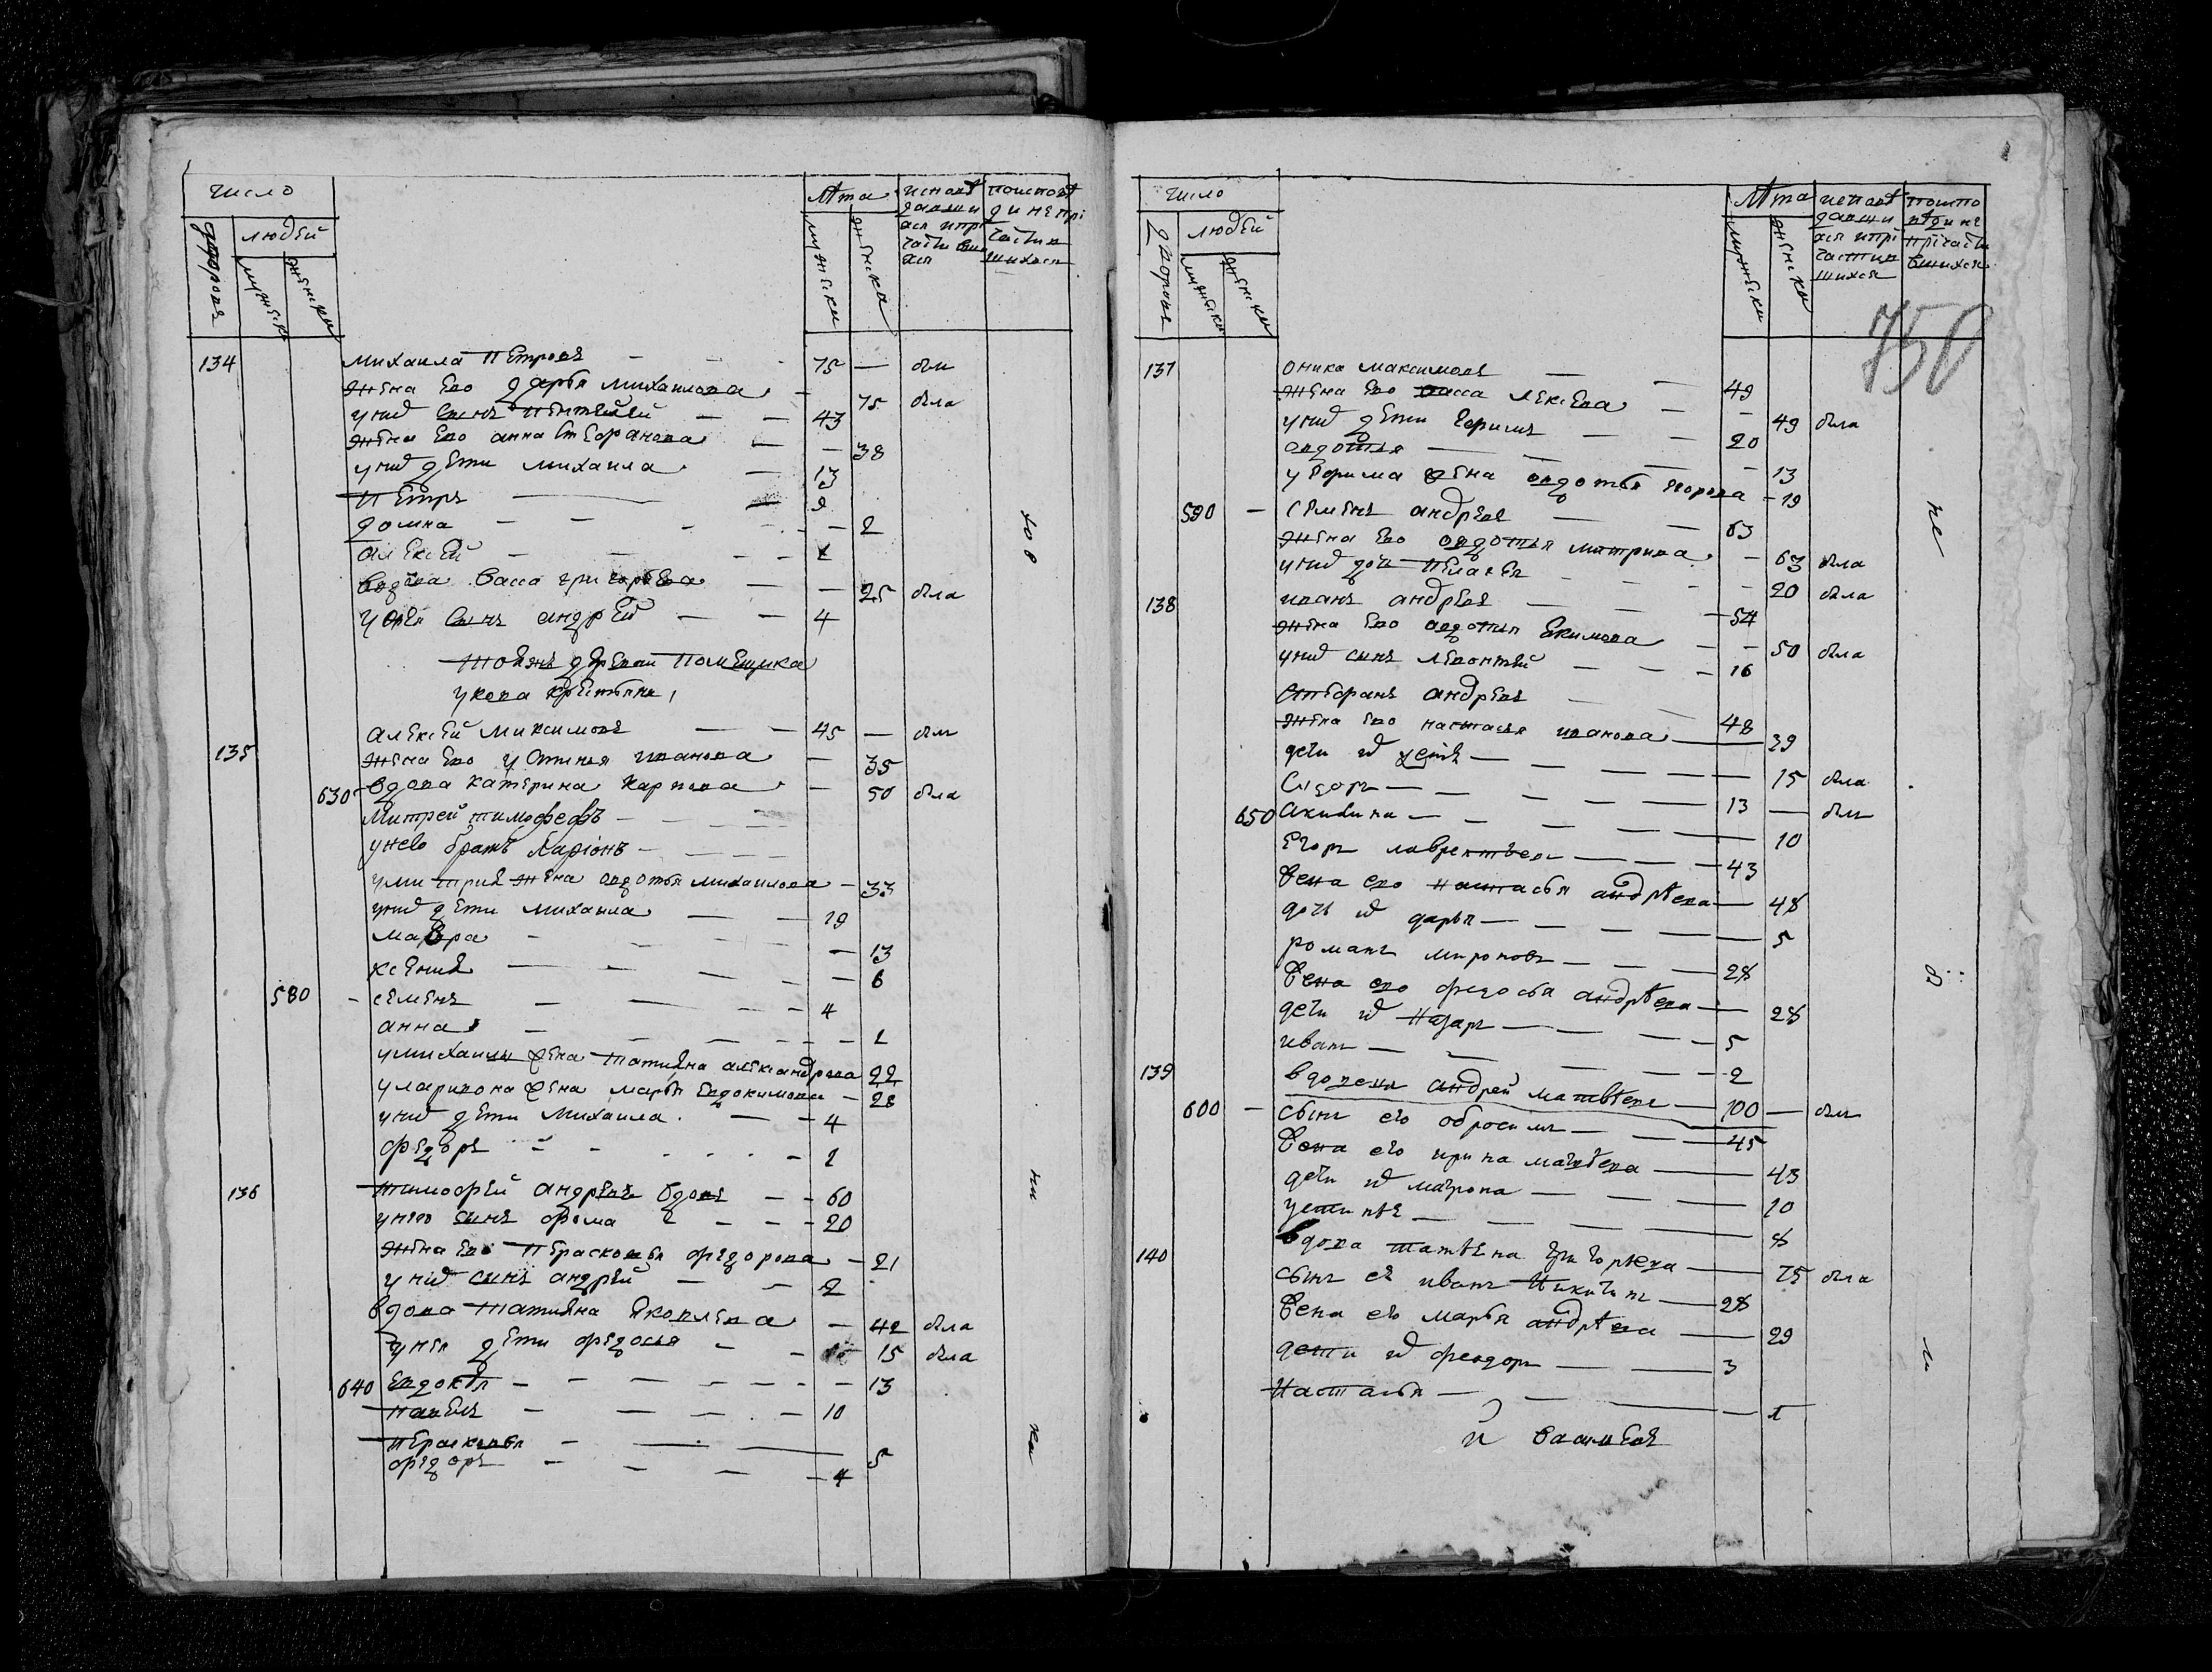 число
лѣта
дворовъ
людей
мужеска
женска
мужеска
женска
134 михаила петровъ 75 — былъ
жена ево дарья михаилова 75 была
у них сынъ 43
жена ево анна стефанова 38
у них дети михаила 13
петръ 9
домна 2
алексей 1
вдова васса григорьева 25 была
у нея сынъ андрей 4
тоежъ деревни помещика
укова крестьяне
135 алексей максимовъ 45 — былъ
жена ево устинья иванова 35
630 вдова катерина карпова 50 была
Митрей тимофеефъ
у нево братъ Ларіонъ
у митрия жена авдотья михаилова 33
у них дети михаила 19
мавра 13
ксения 6
580 семенъ 4
анна 1
у михаилы жена татияна александрова 22
у лариона жена марья евдокимова 28
у них дети михаила 4
федоръ 1
136 тимофей андреевъ вдовъ 60
у него сынъ фома 20
жена ево перасковья федорова 21
у них сынъ андрей 2
вдова татияна яковлева 42 была
у нея дети федосья 15 была
640 евдокея 13
павелъ 10
перасковья 5
федоръ 4
число
лѣта
дворовъ
людей
мужеска
женска
мужеска
женска
750
137 оника максимовъ 49
жена ево васса 49 была
у них дети ефимъ 20
авдотья 13
у ефима жена авдотья 19
590 — семенъ андреевъ 63
жена ево авдотья митрива 63 была
у них дочь пелагея 20 была
138 иванъ андреевъ 54
жена ево авдотья екимова 50 была
у них сынъ левонтей 16
стефанъ андреевъ 48
жена ево настасья иванова 39
дети их 15 была
Сидоръ 13 — былъ
650 акилина 10
егоръ лаврентьевъ 43
жена его настасья андрѣева 48
дочь их дарья 5
романъ мироновъ 28
жена его федосья андрѣева 28
дети их назаръ 5
иванъ 2
139 вдовецъ андрей матвѣевъ 100 — былъ
600 — сынъ его обросимъ 45
жена его ирина матвѣева 43
дети их матрона 10
устинья 8
140 вдова татьяна григорьева 75 была
сынъ ея иванъ никитинъ 28
жена его марья андрѣева 29
дети их феодоръ 3
настасья 1
й васильевъ